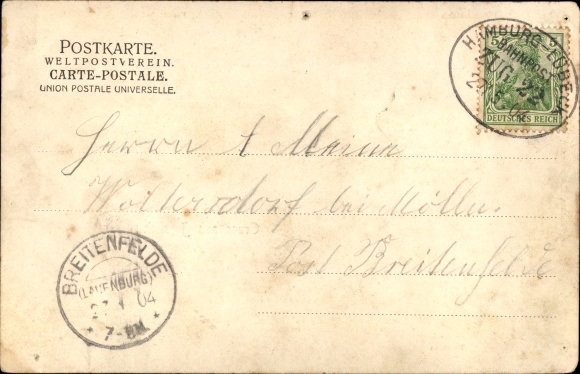 POSTKARTE.
WELTPOSTVEREIN.
CARTE-POSTALE.
UNION POSTALE UNIVERSELLE.
HAMBURG-LÜBECK
BAHNPOST
ZUG 22
04
5
DEUTSCHES REICH
Herrn
Woltersdorf bei Mölln.
Post Breitenfelde
BREITENFELDE
(LAUENBURG)
04
* 7-8N. *